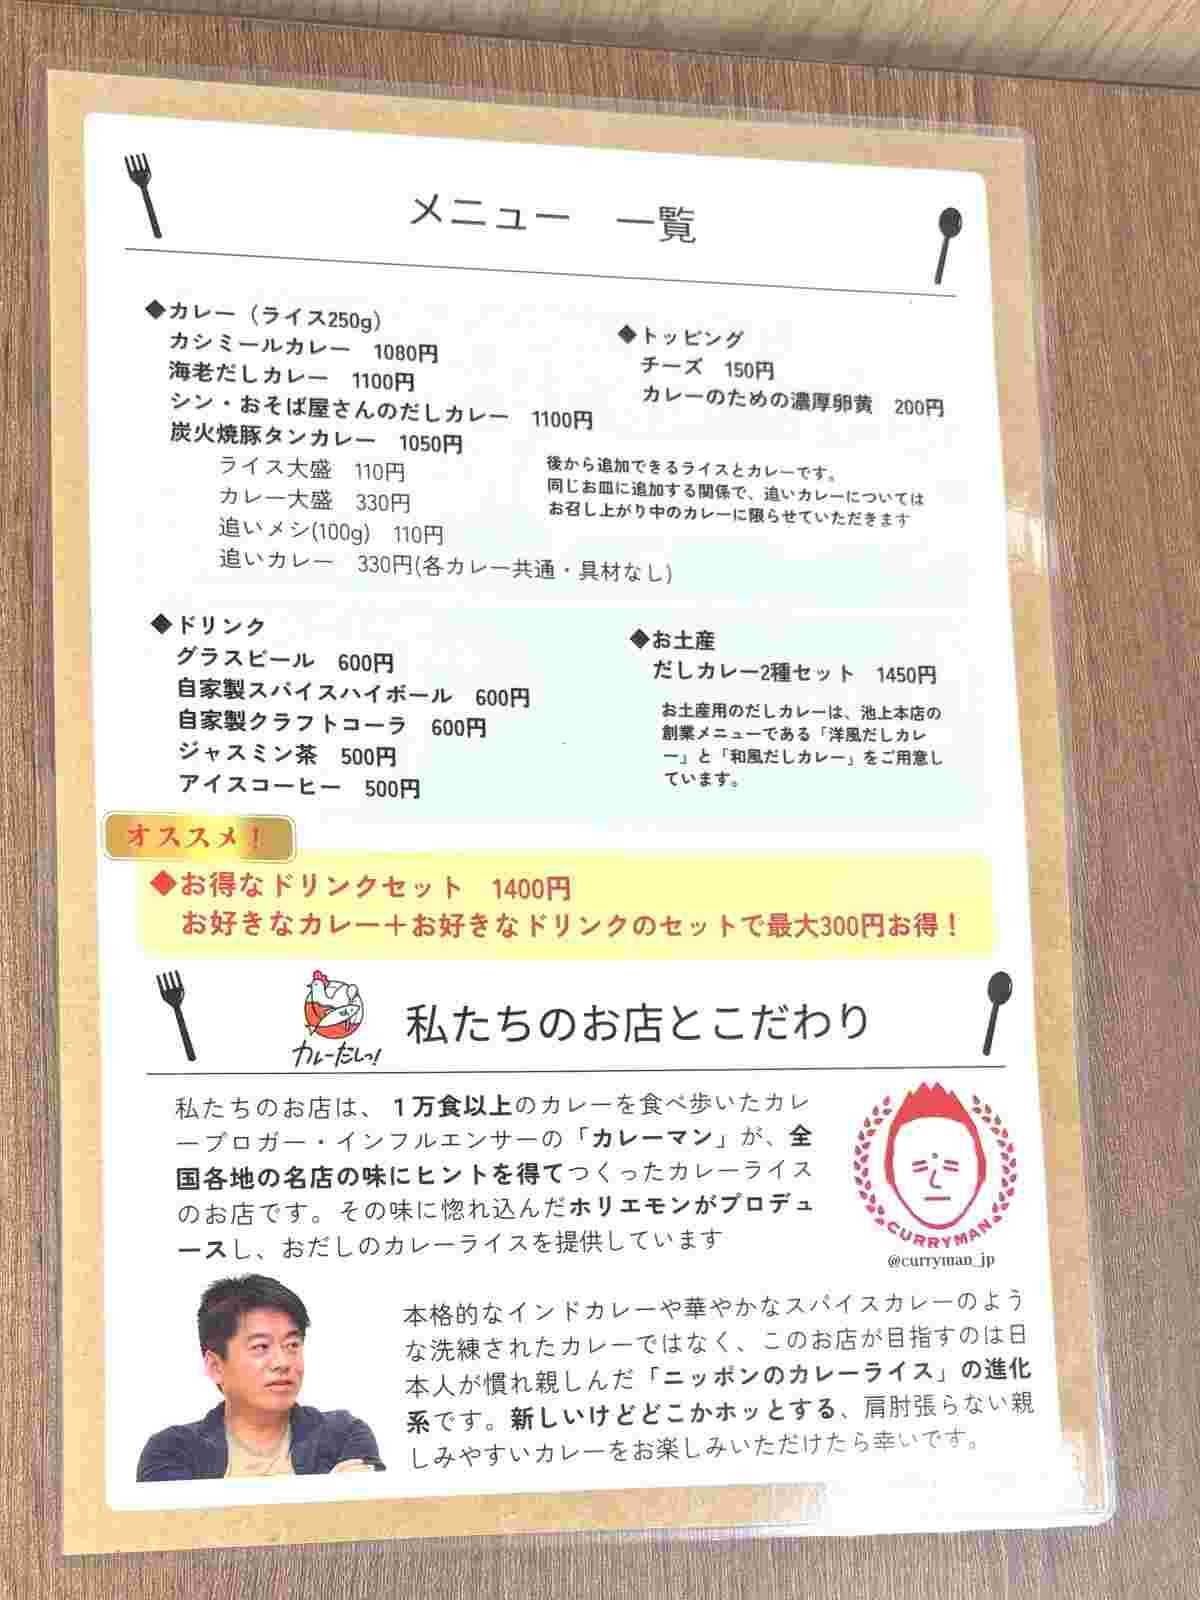 メニュー　一覧
◆カレー（ライス250g）
カシミールカレー　1080円
海老だしカレー　1100円
シン・おそば屋さんのだしカレー　1100円
炭火焼豚タンカレー　1050円
ライス大盛　110円
カレー大盛　330円
追いメシ(100g)　110円
追いカレー　330円(各カレー共通・具材なし)
◆トッピング
チーズ　150円
カレーのための濃厚卵黄　200円
後から追加できるライスとカレーです。
同じお皿に追加する関係で、追いカレーについては
お召し上がり中のカレーに限らせていただきます
◆ドリンク
グラスビール　600円
自家製スパイスハイボール　600円
自家製クラフトコーラ　600円
ジャスミン茶　500円
アイスコーヒー　500円
◆お土産
だしカレー2種セット　1450円
お土産用のだしカレーは、池上本店の
創業メニューである「洋風だしカレ
ー」と「和風だしカレー」をご用意し
ています。
オススメ！
◆お得なドリンクセット　1400円
お好きなカレー＋お好きなドリンクのセットで最大300円お得！
カレーだしっ!
私たちのお店とこだわり
私たちのお店は、１万食以上のカレーを食べ歩いたカレ
ーブロガー・インフルエンサーの「カレーマン」が、全
国各地の名店の味にヒントを得てつくったカレーライス
のお店です。その味に惚れ込んだホリエモンがプロデュ
ースし、おだしのカレーライスを提供しています
CURRYMAN
@curryman_jp
本格的なインドカレーや華やかなスパイスカレーのよう
な洗練されたカレーではなく、このお店が目指すのは日
本人が慣れ親しんだ「ニッポンのカレーライス」の進化
系です。新しいけどどこかホッとする、肩肘張らない親
しみやすいカレーをお楽しみいただけたら幸いです。